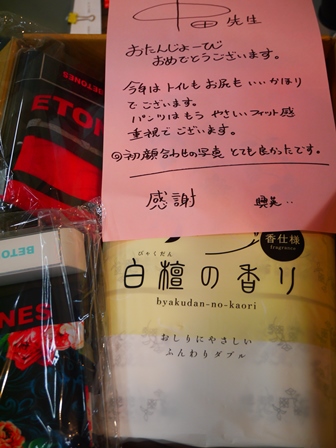 中田先生
おたんじょーび
おめでとうございます。
今年はトイレもお尻もいいかほり
でございます。
パンツはもうやさしいフィット感
重視でございます。
初顔合わせの写真とても良かったです。
感謝
BETONES
ETON
BETO
NES
香仕様
fragrance
びゃくだん
白檀の香り
byakudan-no-kaori
おしりにやさしい
ふんわりダブル